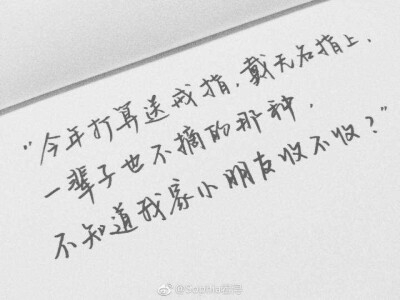 "今年打算送戒指，戴无名指上，
一辈子也不摘的那种，
不知道我家小朋友收不收？"